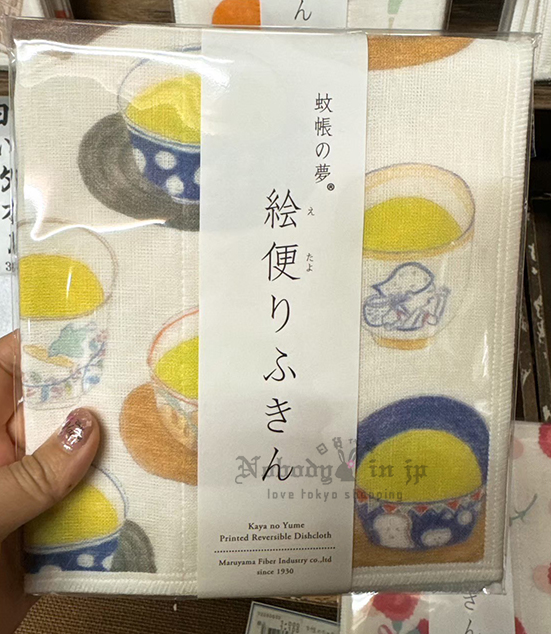 ん
蚊帳の夢®
絵便りふきん
え
たよ
日貨
Nobody in jp
love tokyo shopping
Kaya no Yume
Printed Reversible Dishcloth
Maruyama Fiber Industry co.,ltd
since 1930
きん